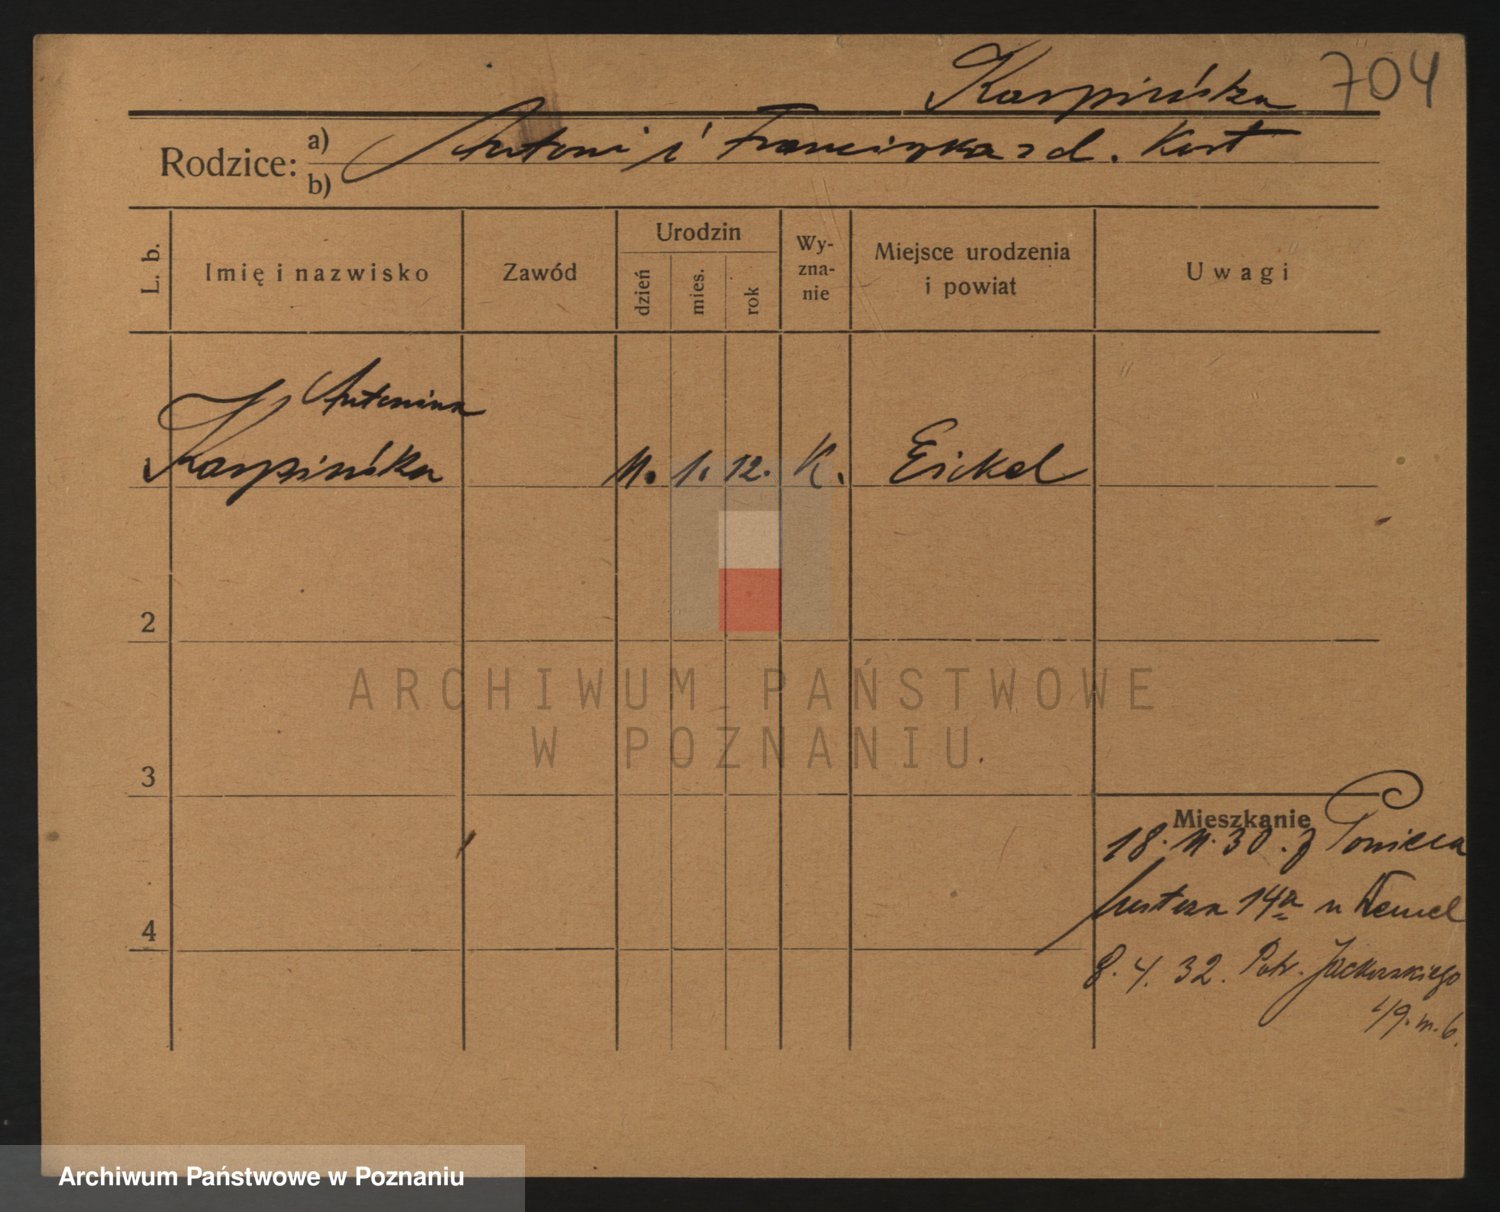 Karpińska 704
Rodzice: a) Antoni i Franciszka z d. Kost
b)
L. b. Imię i nazwisko Zawód Urodzin dzień mies. rok Wy-zna-nie Miejsce urodzenia i powiat Uwagi
Antonina
Karpińska 11. 1. 12. K. Eickel
2
ARCHIWUM PAŃSTWOWE
W POZNANIU
3
Mieszkanie
18. 11. 30. z Ponieca
14a u
4
8. 4. 32. Patr. Jackowskiego
49. m. 6.
Archiwum Państwowe w Poznaniu